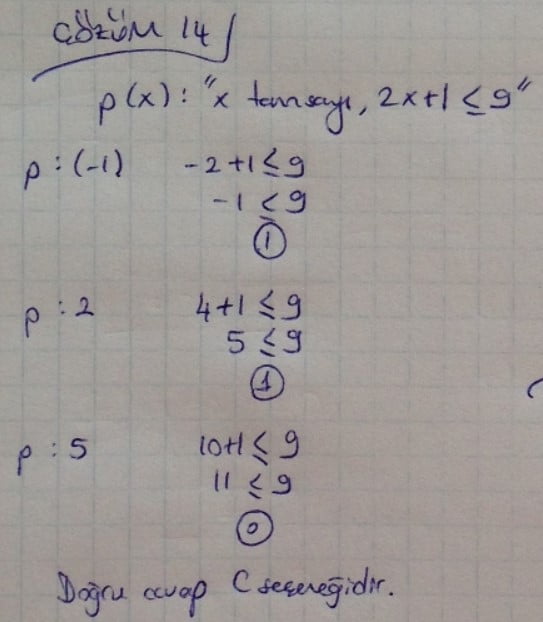 ÇÖZÜM 14
p(x): "x tamsayı, 2x+1 ≤ 9"
p:(-1) -2+1 ≤ 9
-1 ≤ 9
1
p:2 4+1 ≤ 9
5 ≤ 9
1
p:5 10+1 ≤ 9
11 ≤ 9
0
Doğru cevap C seçeneğidir.